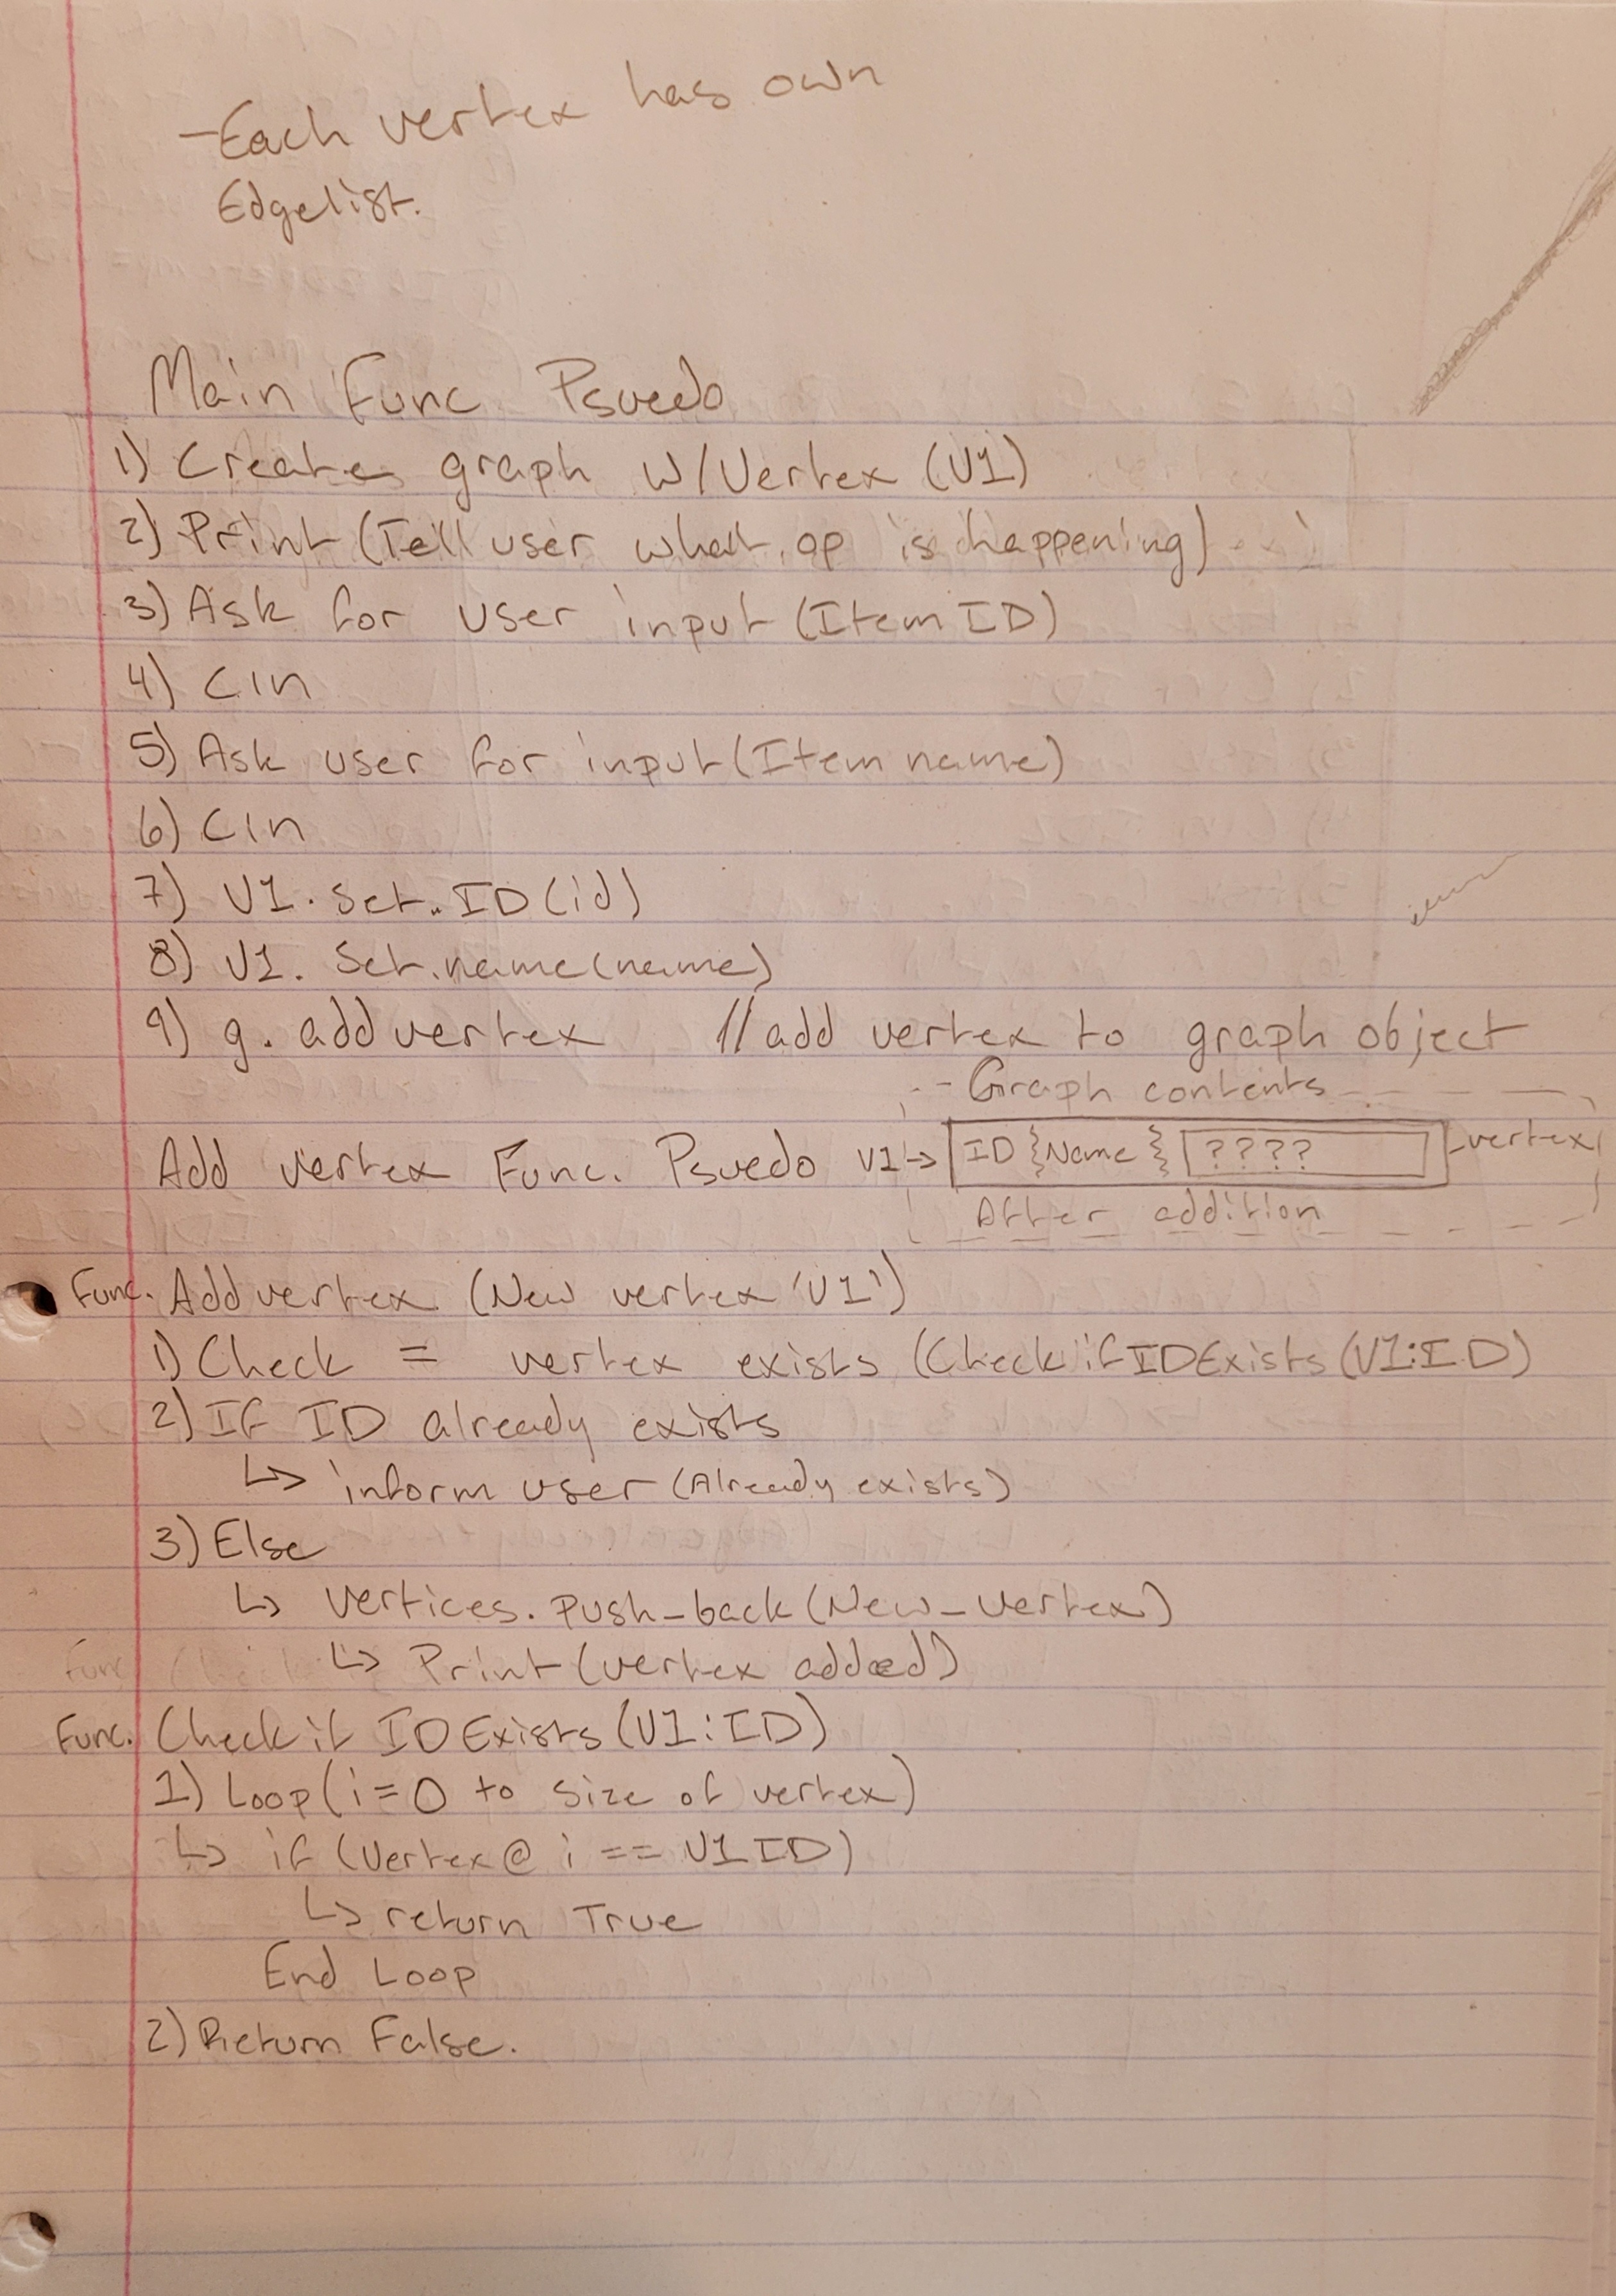 -Each vertex has own
Edgelist.
Main Func Psuedo
1) Create graph w/Vertex (V1)
2) Print (Tell user what op is happening)
3) Ask for user input (Item ID)
4) Cin
5) Ask user for input (Item name)
6) Cin
7) V1. Set. ID (id)
8) V1. Set. name (name)
9) g. add vertex // add vertex to graph object
Graph contents
Add vertex Func. Psuedo V1 → ID } Name } ???? vertex
After addition
Func. Add vertex (New vertex 'V1')
1) Check = vertex exists (Check if IDExists (V1:ID)
2) If ID already exists
↳ inform user (Already exists)
3) Else
↳ Vertices. Push_back (New_Vertex)
Func ↳ Print (vertex added)
Func. Check if IDExists (V1:ID)
1) Loop (i=0 to size of vertex)
↳ if (Vertex @ i == V1 ID)
↳ return True
End Loop
2) Return False.